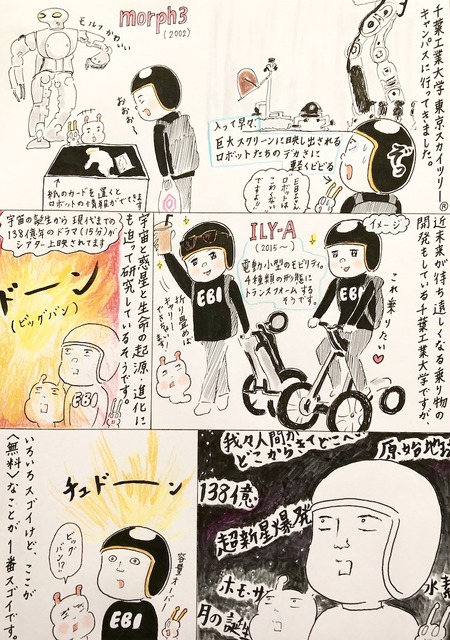 千葉工業大学 東京スカイツリー®
キャンパスに行ってきました。
入って早々、
巨大スクリーンに映し出される
ロボットたちのデカさに
軽くビビる
ロボットは
こわくない
ですよ!!
morph3
(2002)
モルフかわいい
おおお〜
机のカードを置くと
ロボットの情報がでてきます
近未来が待ち遠しくなる乗り物の
開発もしている千葉工業大学ですが、
イメージ
これ乗りたい
ILY-A
(2015〜)
電動小型のモビリティ。
4種類の形態に
トランスフォームする
そうです。
EBI
折り畳めば
キャリー
宇宙と惑星と生命の起源・進化に
も迫って研究しているそうです。
宇宙の誕生から 現代までの
138億年のドラマ(15分)が
シアター上映されてます
ドーン
(ビッグバン)
EBI
我々人間が
どこからきてどこへ
原始地球
138億
超新星爆発
ホモ・サ
水素
月の誕生
チュドーーン
容量オーバー
ビッグ
バン!?
EBI
いろいろスゴイけど、ここが
〈無料〉なことが 1番スゴイです。